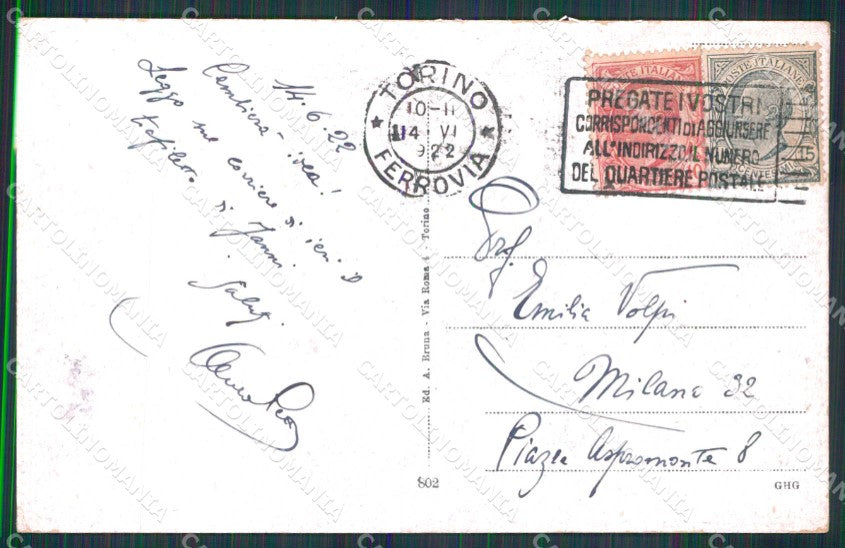 14.6.22
idea!
Leggo sul corriere di ieri il
trafiletto di
TORINO
10-11
14 VI
922
FERROVIA
POSTE ITALIANE
POSTE ITALIANE
15
PREGATE I VOSTRI
CORRISPONDENTI DI AGGIUNGERE
ALL'INDIRIZZO IL NUMERO
DEL QUARTIERE POSTALE
Prof.
Emilia Volpi
Milano 32
Piazza Aspromonte 8
Ed. A. Bruna - Via Roma 4 - Torino
802
GHG
CARTOLINOMANIA